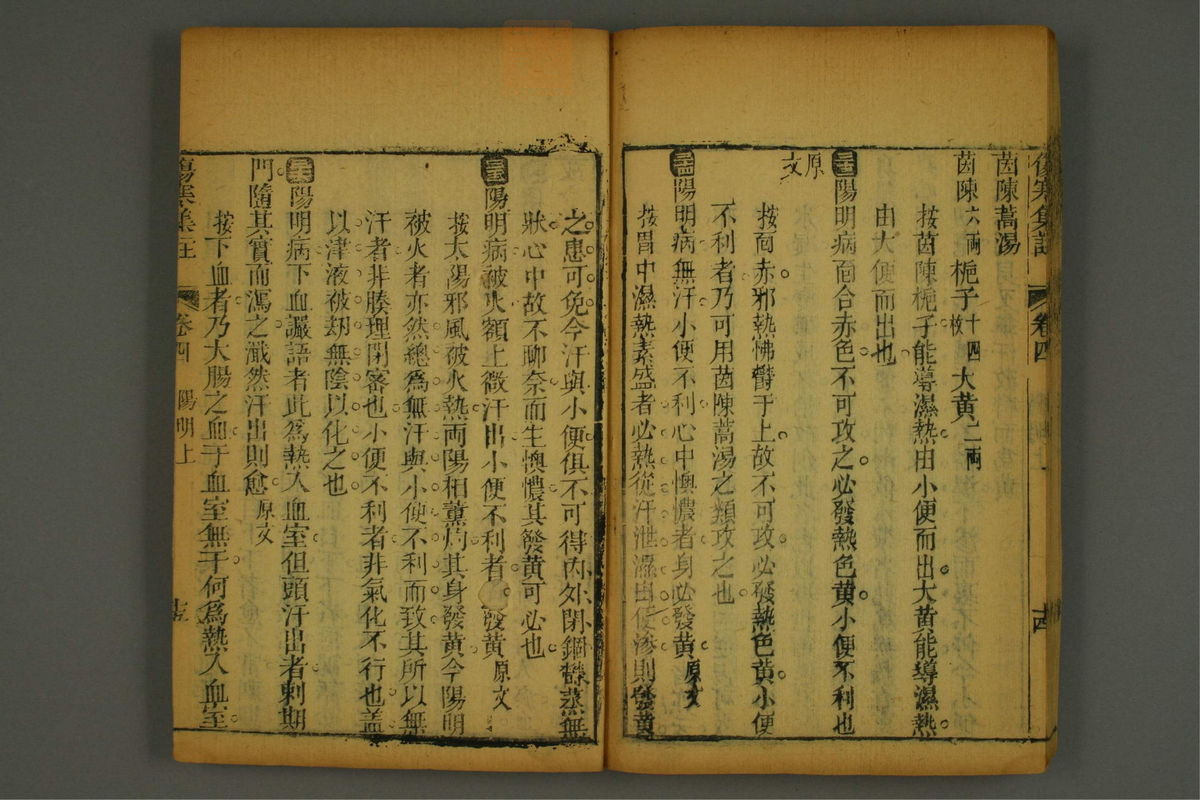 傷寒集註 卷四 十四
茵陳蒿湯
茵陳六兩 梔子十四枚 大黃二兩
按茵陳梔子能導濕熱由小便而出大黃能導濕熱
由大便而出也
陽明病面合赤色不可攻之必發熱色黃小便不利也
原文
按面赤邪熱怫鬱于上故不可攻必發熱色黃小便
不利者乃可用茵陳蒿湯之類攻之也
陽明病無汗小便不利心中懊憹者身必發黃原文
按胃中濕熱素盛者必熱從汗泄濕由便滲則發黃
之患可免今汗與小便俱不可得內外閉錮鬱蒸無
狀心中故不聊奈而生懊憹其發黃可必也
陽明病被火額上微汗出小便不利者發黃原文
按太陽邪風被火熱兩陽相薰灼其身發黃今陽明
被火者亦然總為無汗與小便不利而致其所以無
汗者非腠理閉密也小便不利者非氣化不行也盖
以津液被刼無陰以化之也
陽明病下血讝語者此為熱入血室但頭汗出者刺期
門隨其實而瀉之濈然汗出則愈原文
按下血者乃大腸之血于血室無干何為熱入血室
傷寒集註 卷四 陽明上 十五